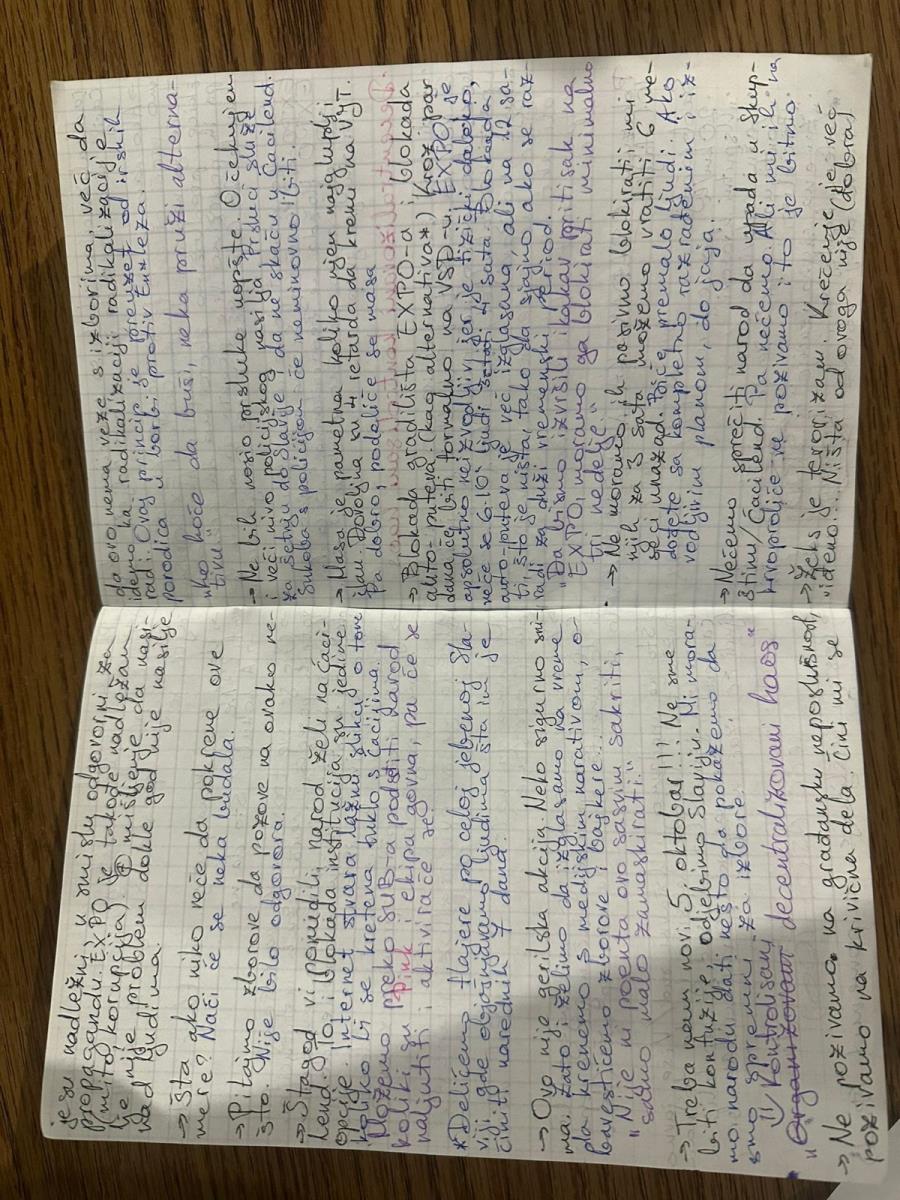 je su nadležni u smislu odgovorni za
propagandu. EXPO je takođe nadležan
(mito, korupcija) mišljenje da nasi-
lje nije problem dokle god nije nasilje
nad ljudima.
→ Šta ako niko neće da pokrene ove
mere? Naći će se neka budala.
→ Pitajmo zborove da pozove na ovako ne-
što. Nije bilo odgovora.
→ Štagod vi ponudili, narod želi na Ćaci-
lend. To i blokada institucija su jedine
opcije. Internet stvara lažnu sliku o tome
koliko bi se kretena tuklo s ćacijima.
Možemo preko SUB-a podsetiti narod
koliki su pink i ekipa govna, pa će se
naljutiti i aktiviraće se.
* Delićemo flajere po celoj jebenoj Sla-
viji gde objašnjavamo ljudima šta im je
činiti narednih 7 dana.
→ Ovo nije gerilska akcija. Nelo sigurno sni-
ma. Zato i želimo da izglasamo na vreme
da krenemo s medijskim narativom, o-
bavestićemo zborove i bajkere...
"Nije ni poenta ovo sasvim sakriti,
samo malo zamaskirati."
→ Treba nam novi 5. oktobar!!! Ne sme
biti kontuzije, odjebimo Slaviju. Mi mora-
mo narodu dati nešto da pokažemo da
smo spremni za izbore.
Kontrolisani
" Organizovan decentralizovani haos"
→ Ne pozivamo na građansku neposlušnost,
pozivamo na krivična dela. Čini mi se
da ovo nema veze s izborima, već da
idemo ka radikalizaciji radikalizacije
radi. Ovaj princip je preuzet od irskih
porodica u borbi protiv Enteza.
"ko hoće da buši, neka pruži alterna-
tivu"
→ Ne bih nosio prsluke uopšte. Očekujem
i veći nivo policijskog nasilja. Prsluci služe
za šetnju do Slavije da ne skaću u Ćacilend.
Sukoba s policijom će neminovno biti.
→ Masa je pametna koliko njen najgluplji
član. Dovoljna su 4 retarda da krenu na VŠT.
Pa dobro, podeliće se masa
→ Blokada gradilišta EXPO-a i blokada
auto-puteva. (kao alternativa*) Kroz par
dana će biti formalno na VSD-u. EXPO je
apsolutno neizvodljiv jer je fizički daleko,
neće se 6·10⁴ ljudi šetati 4 sata. Blokada
auto-puteva je već izglasana, ali na 12 sa-
ti, što je ništa, tako da sjajno ako se raz-
radi za duži vremenski period.
"Da bismo izvršili ikakav pritisak na
EXPO, moramo ga blokirati minimalno
tri nedelje"
→ Ne moramo ih pasivno blokirati, mi
njih za 3 sata možemo vratiti 6 me-
seci unazad. Biće premalo ljudi. Ako
dođete sa kompletno razrađenim i iz-
vodljivim planom, do jaja.
→ Nećemo sprečiti narod da upada u Skup-
štinu/Ćacilend. Pa nećemo. Ali mi ih na
krvoproliće ne pozivamo i to je bitno.
→ Žeks je terorizam. Krečenje je već
viđeno... Ništa od ovoga nije (dobra)